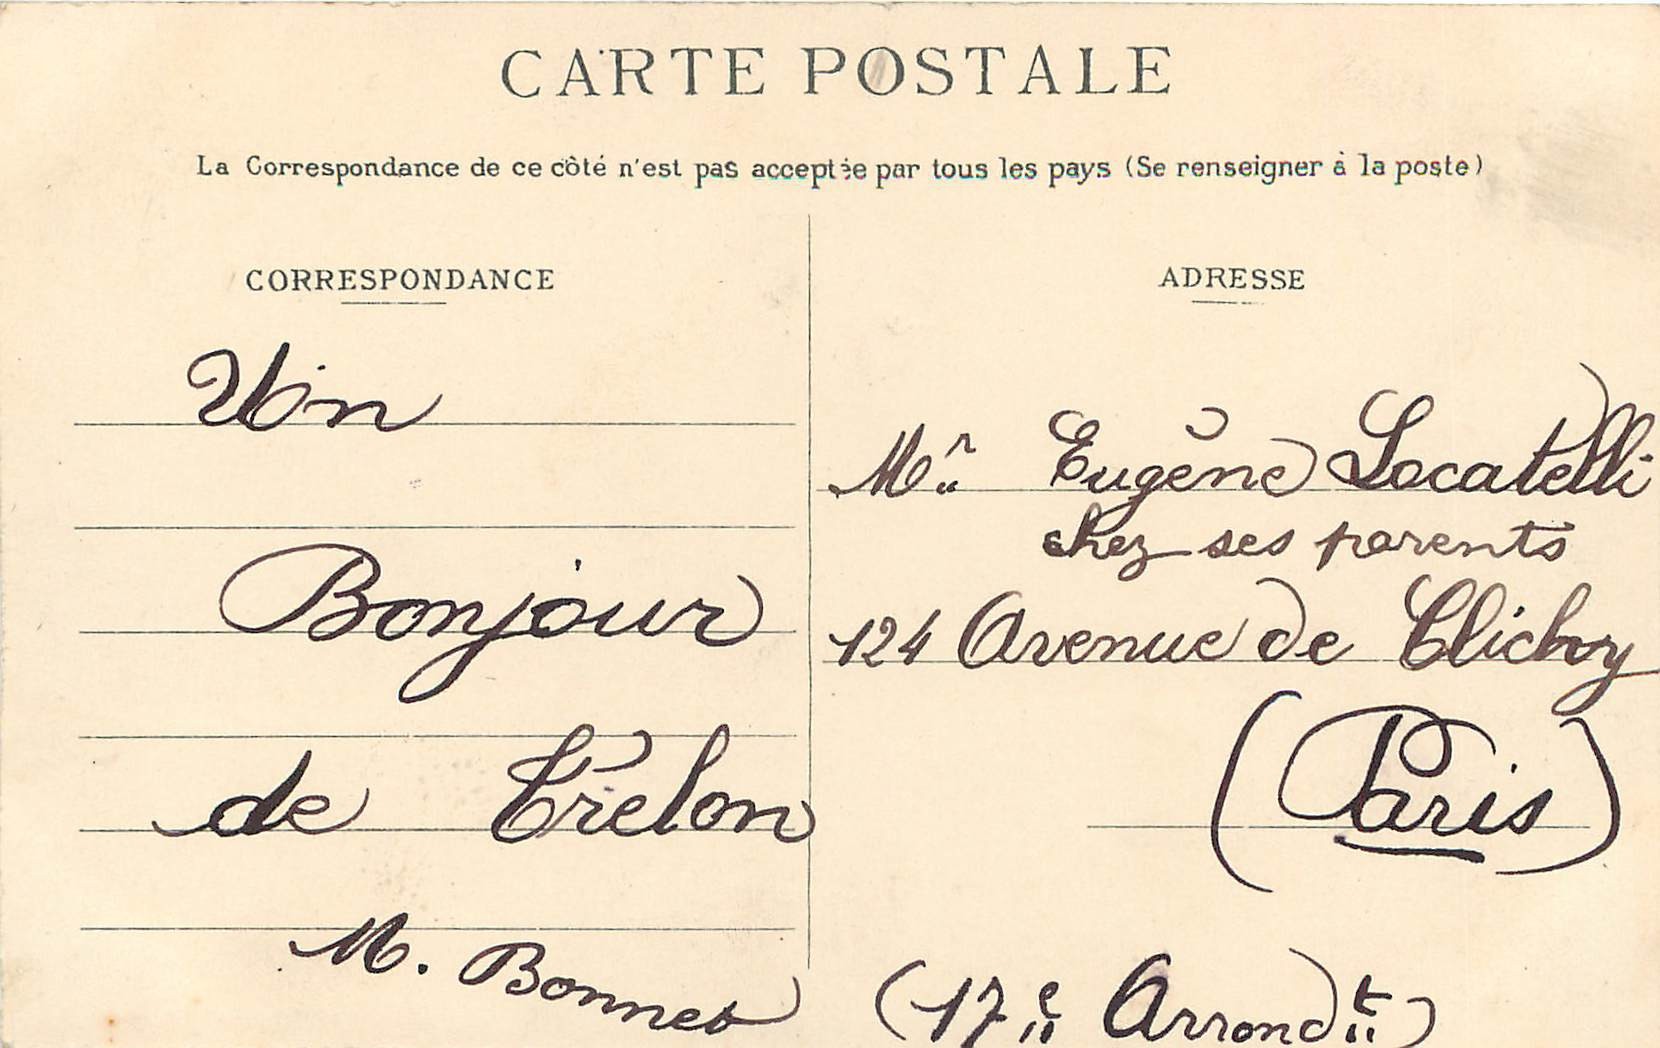 CARTE POSTALE
La Correspondance de ce côté n'est pas acceptée par tous les pays (Se renseigner à la poste)
CORRESPONDANCE
Un
Bonjour
de Trélon
M. Bonnet
ADRESSE
Mr Eugène Locatelli
chez ses parents
124 Avenue de Clichy
(Paris)
(17e Arrondt)